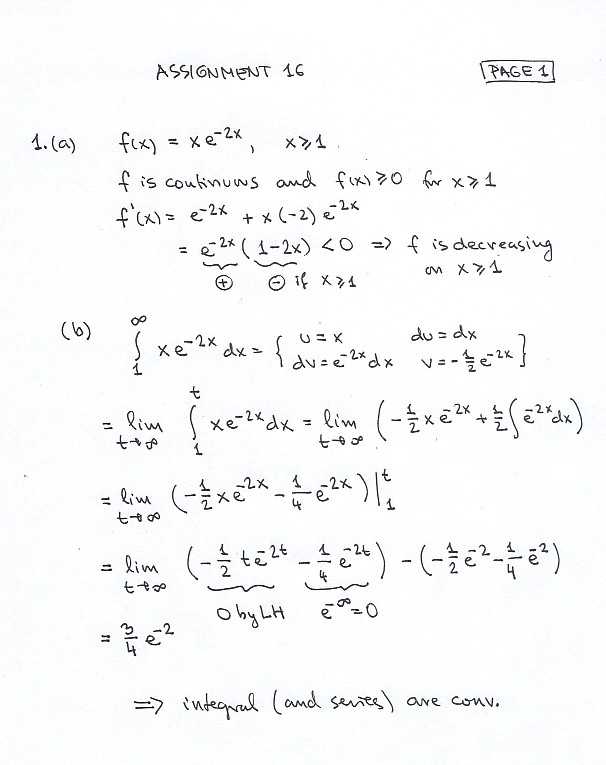 ASSIGNMENT 16 PAGE 1
1.(a) f(x) = x e^{-2x}, x ≥ 1.
f is continuous and f(x) ≥ 0 for x ≥ 1
f'(x) = e^{-2x} + x(-2) e^{-2x}
= e^{-2x} (1-2x) < 0 => f is decreasing
⊕ ⊖ if x ≥ 1 on x ≥ 1
(b) ∫_1^∞ x e^{-2x} dx = { u = x du = dx
dv = e^{-2x} dx v = -1/2 e^{-2x} }
= lim_{t→∞} ∫_1^t x e^{-2x} dx = lim_{t→∞} (-1/2 x e^{-2x} + 1/2 ∫ e^{-2x} dx)
= lim_{t→∞} (-1/2 x e^{-2x} - 1/4 e^{-2x}) |_1^t
= lim_{t→∞} (-1/2 t e^{-2t} - 1/4 e^{-2t}) - (-1/2 e^{-2} - 1/4 e^{-2})
0 by LH e^{-∞} = 0
= 3/4 e^{-2}
=> integral (and series) are conv.